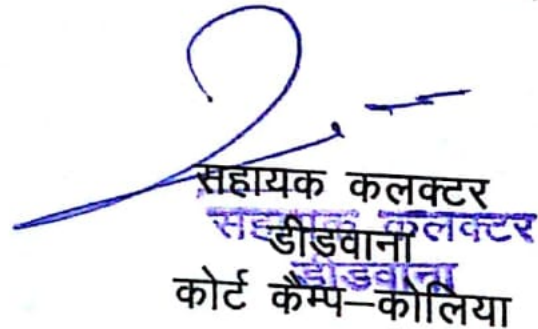 सहायक कलक्टर
सहायक कलक्टर
डीडवाना
डीडवाना
कोर्ट कैम्प–कोलिया